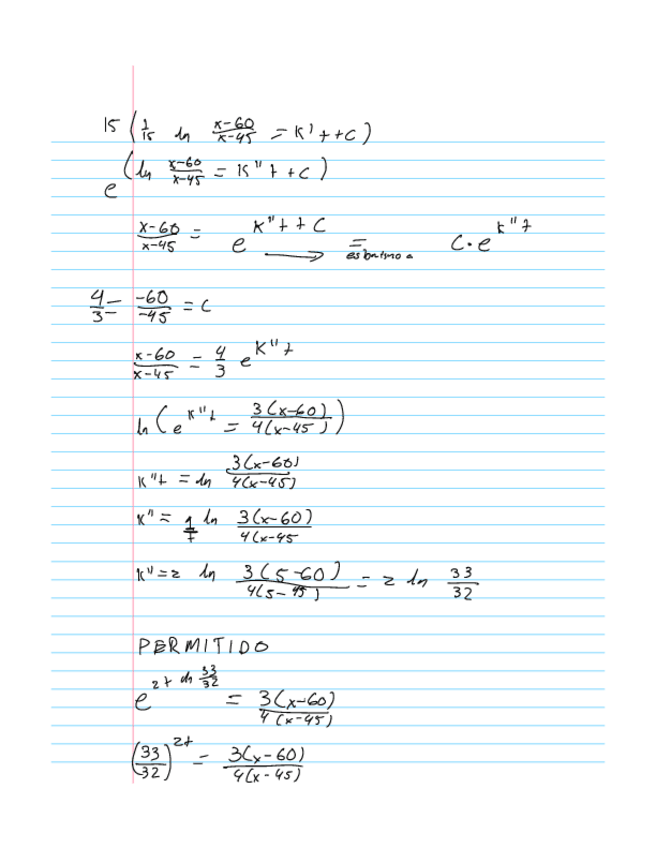 15 (1/15 ln (x-60)/(x-45) = K't + C)
e^(ln (x-60)/(x-45) = K''t + C)
(x-60)/(x-45) = e^(K''t + C) ⟶ = C·e^(K''t)
4/3 = -60/-45 = C
(x-60)/(x-45) = 4/3 e^(K''t)
ln (e^(K''t) = 3(x-60)/4(x-45))
K''t = ln 3(x-60)/4(x-45)
K'' = 1/t ln 3(x-60)/4(x-45
K'' = 2 ln 3(5-60)/4(5-45) = 2 ln 33/32
PERMITIDO
e^(2t ln 33/32) = 3(x-60)/4(x-45)
(33/32)^(2t) = 3(x-60)/4(x-45)